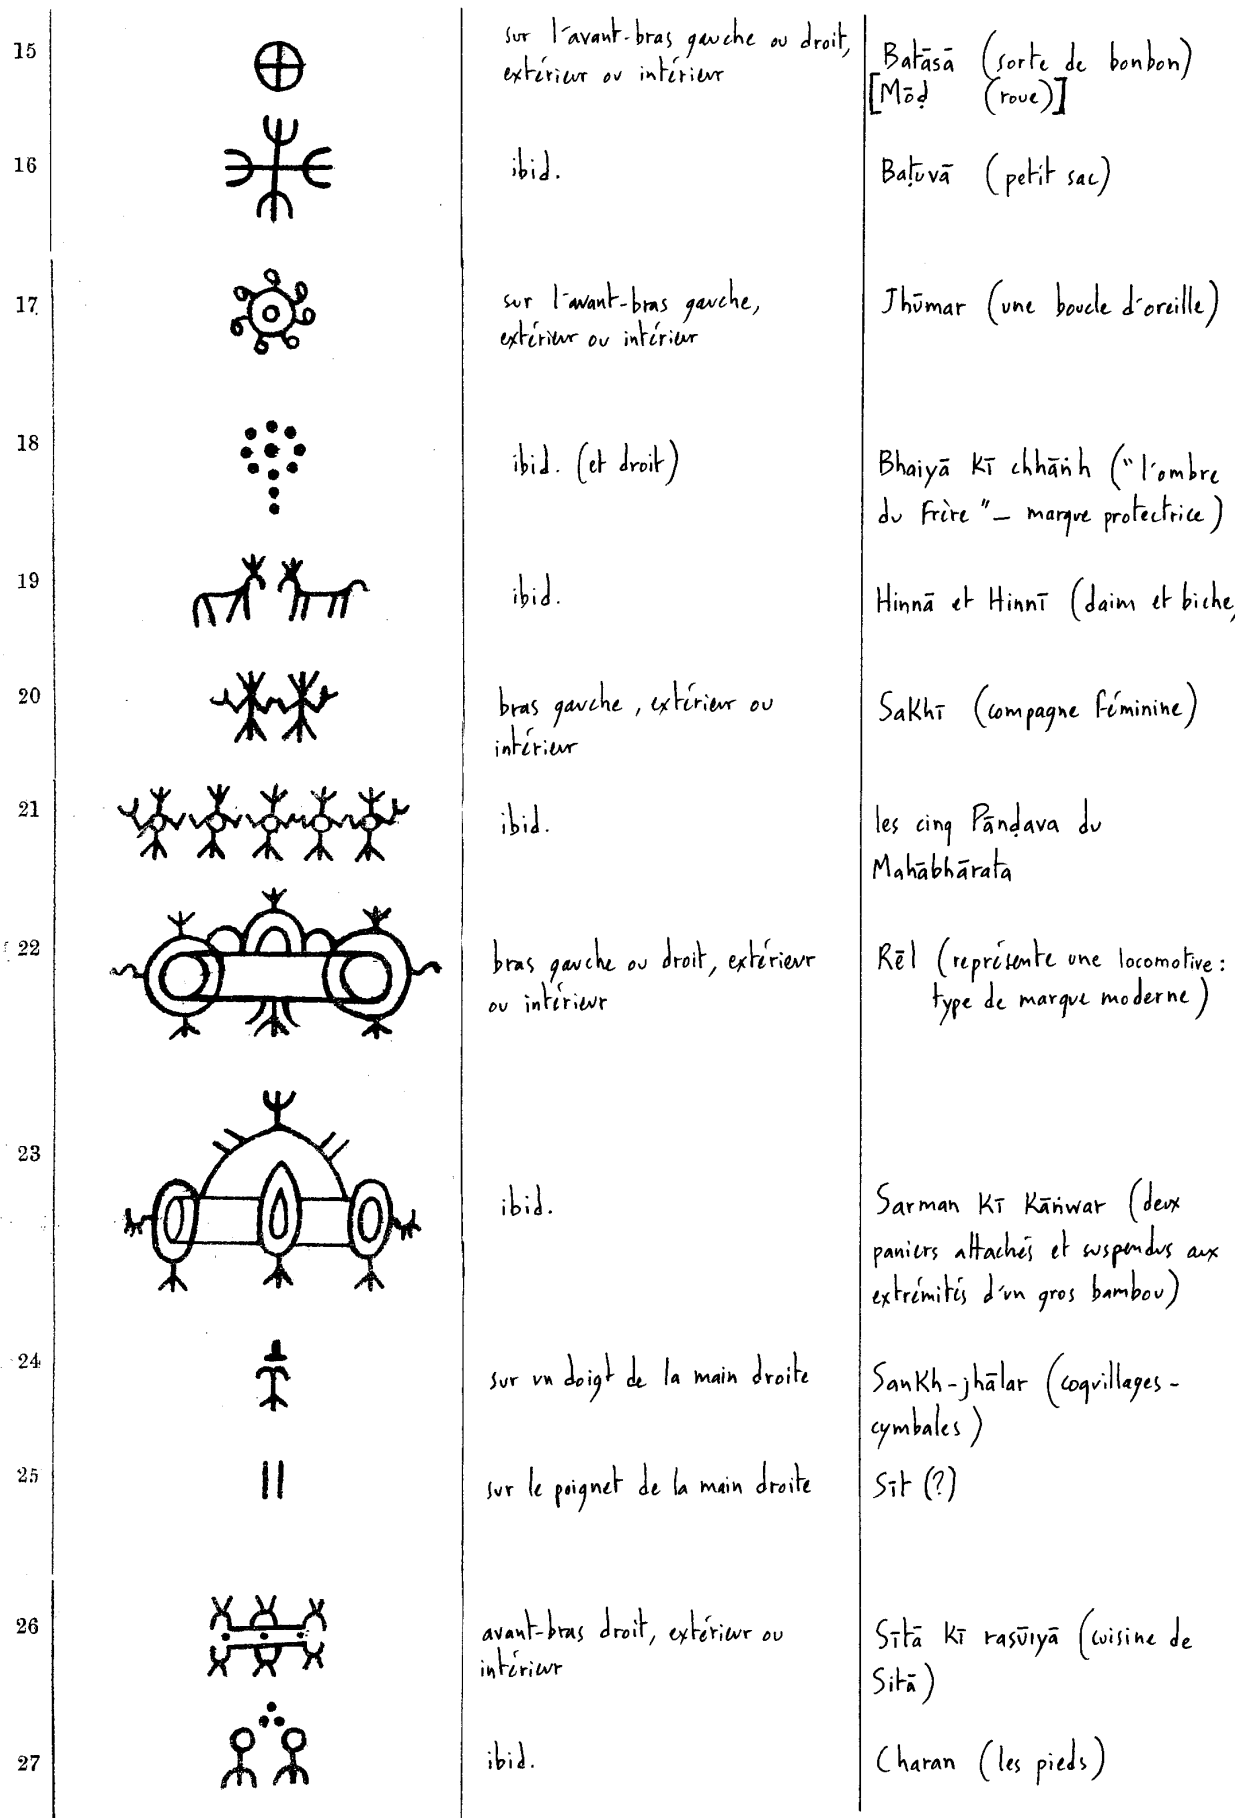 15
sur l'avant-bras gauche ou droit,
extérieur ou intérieur
Batāsā (sorte de bonbon)
[Mōḍ (roue)]
16
ibid.
Baṭuvā (petit sac)
17
sur l'avant-bras gauche,
extérieur ou intérieur
Jhūmar (une boucle d'oreille)
18
ibid. (et droit)
Bhaiyā kī chhāṅh ("l'ombre
du Frère" – marque protectrice)
19
ibid.
Hinnā et Hinnī (daim et biche,
20
bras gauche, extérieur ou
intérieur
Sakhī (compagne féminine)
21
ibid.
les cinq Pānḍava du
Mahābhārata
22
bras gauche ou droit, extérieur
ou intérieur
Rēl (représente une locomotive :
type de marque moderne)
23
ibid.
Sarman kī kāṅwar (deux
paniers attachés et suspendus aux
extrémités d'un gros bambou)
24
sur un doigt de la main droite
Sankh-jhālar (coquillages-
cymbales)
25
sur le poignet de la main droite
Sīt (?)
26
avant-bras droit, extérieur ou
intérieur
Sītā kī rasūiyā (cuisine de
Sitā)
27
ibid.
Charan (les pieds)